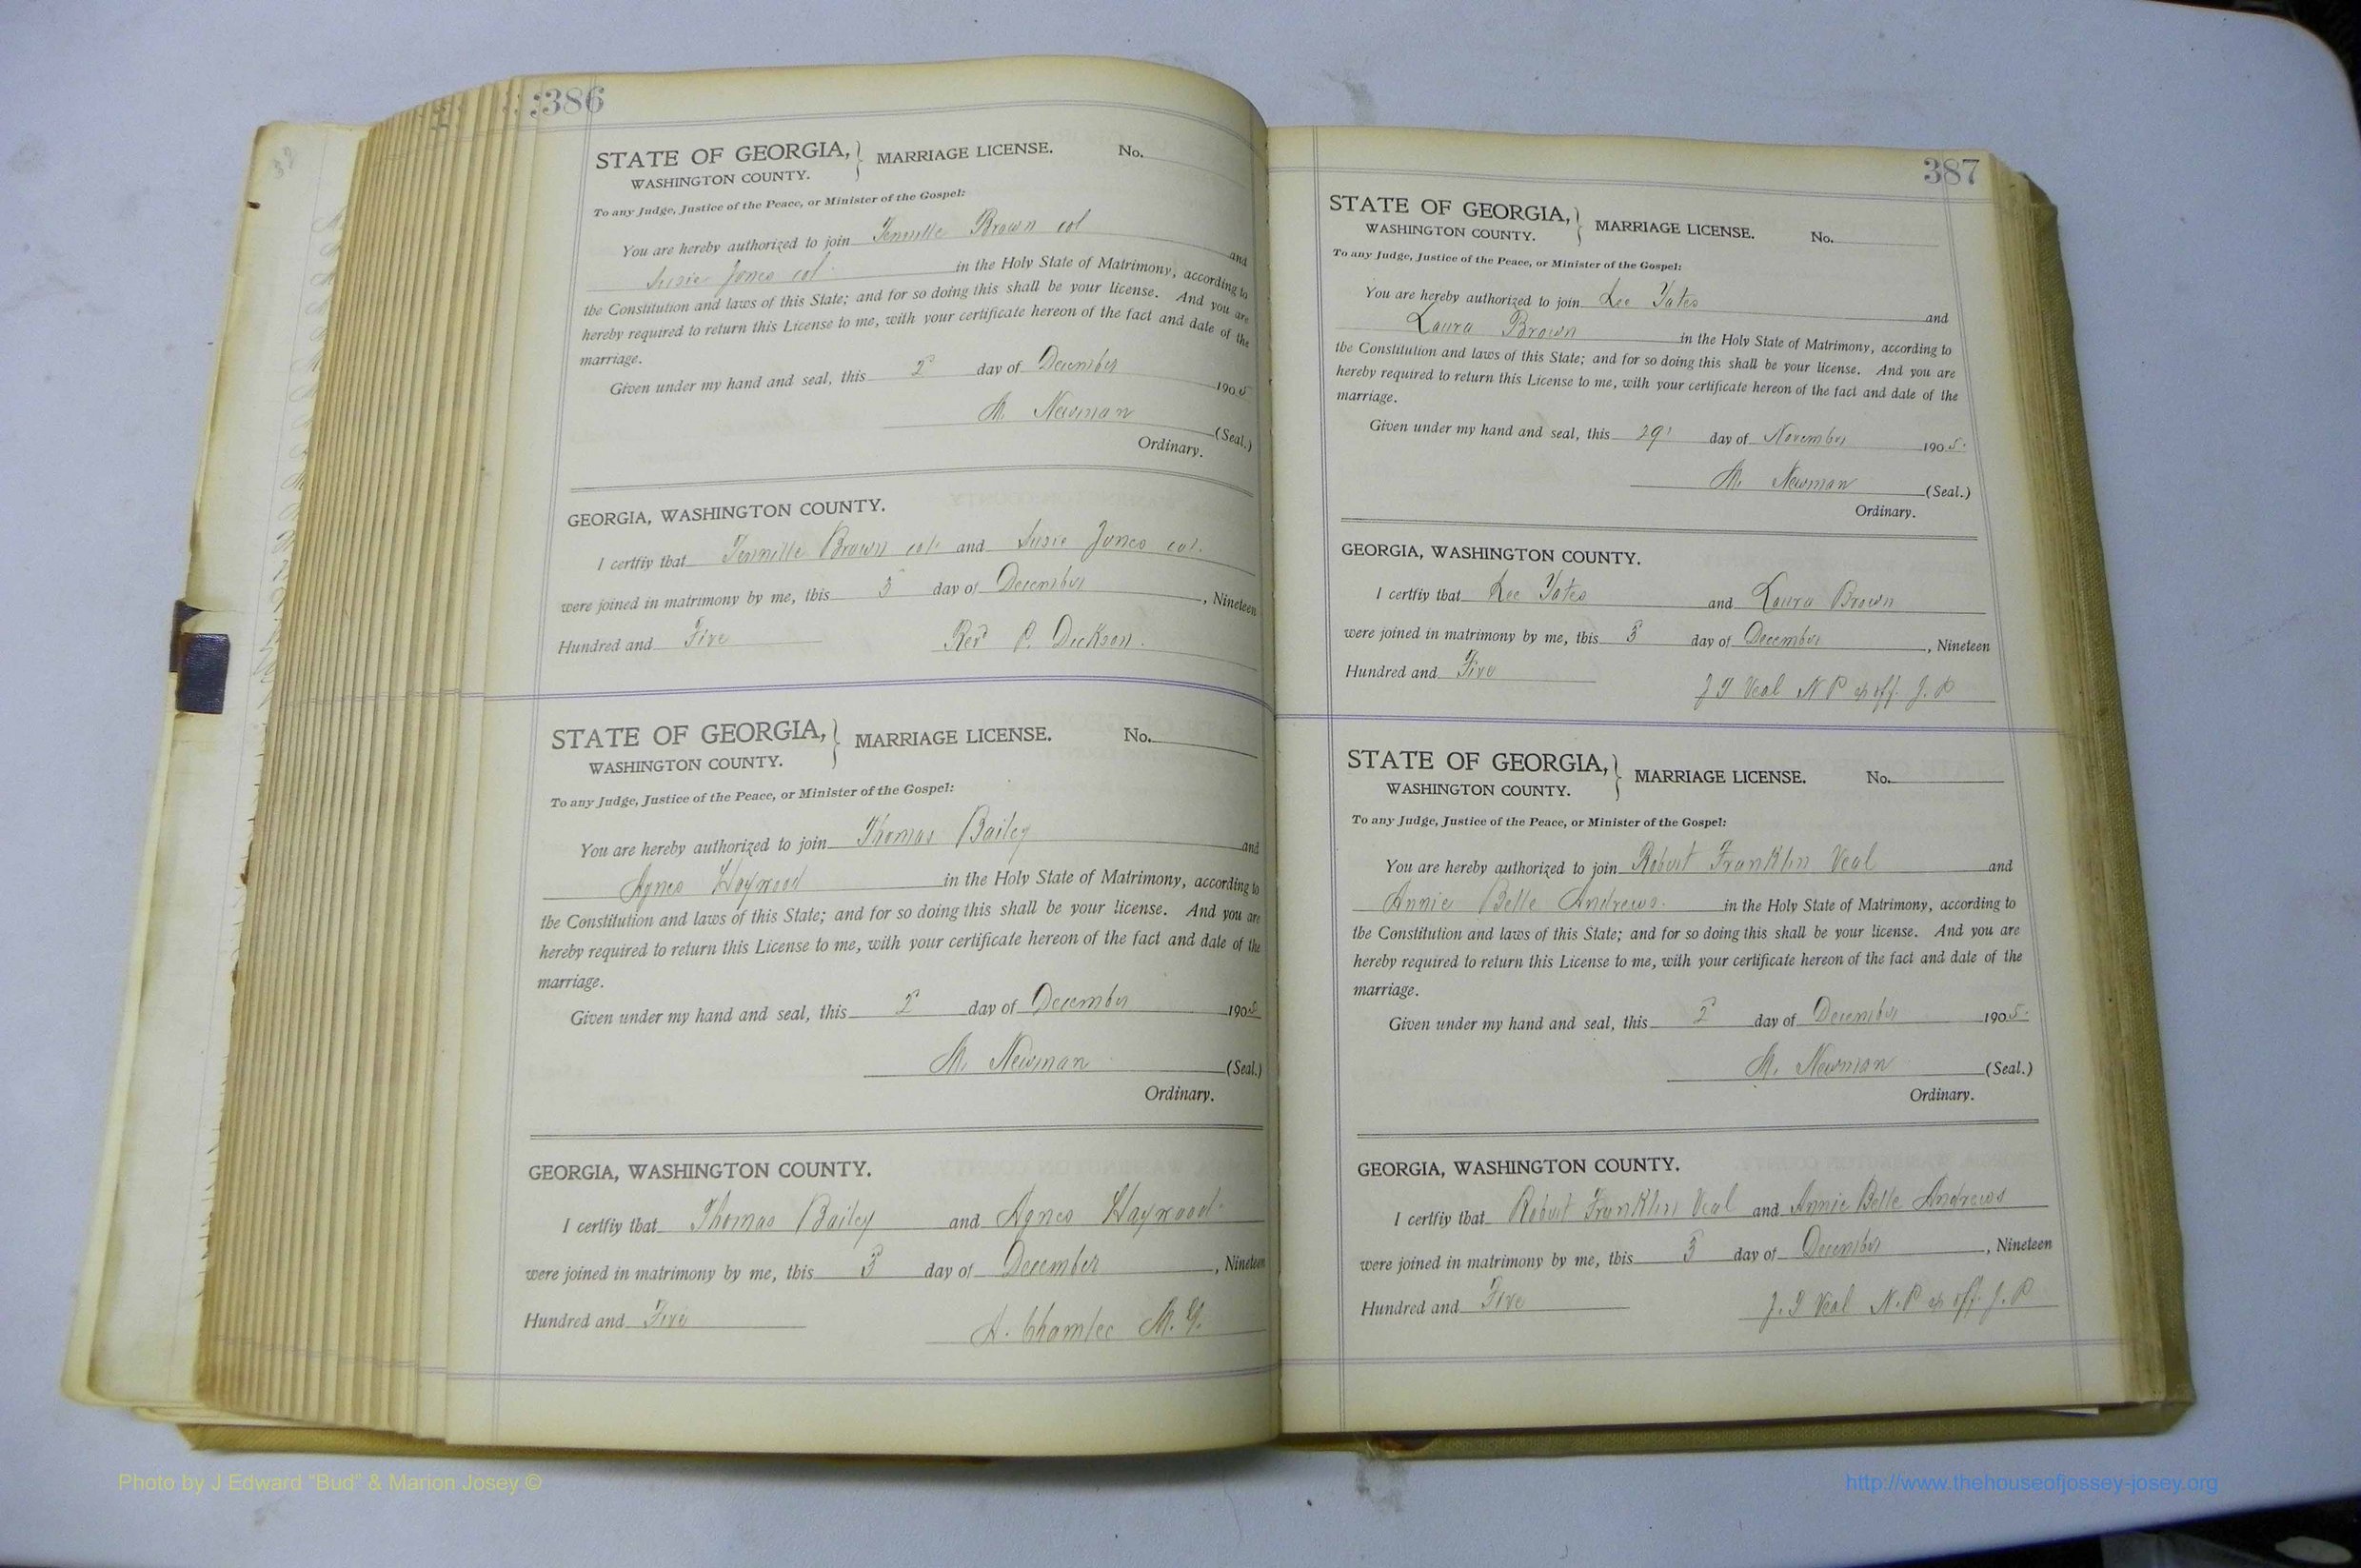 386
STATE OF GEORGIA, MARRIAGE LICENSE. No.
WASHINGTON COUNTY.
To any Judge, Justice of the Peace, or Minister of the Gospel:
You are hereby authorized to join Tennille Brown col and
Susie Jones col in the Holy State of Matrimony, according to
the Constitution and laws of this State; and for so doing this shall be your license. And you are
hereby required to return this License to me, with your certificate hereon of the fact and date of the
marriage.
Given under my hand and seal, this 2 day of December 1905
M. Newman (Seal.)
Ordinary.
GEORGIA, WASHINGTON COUNTY.
I certfiy that Tennille Brown col. and Susie Jones col.
were joined in matrimony by me, this 3 day of December, Nineteen
Hundred and Five Rev P. Dickson.
STATE OF GEORGIA, MARRIAGE LICENSE. No.
WASHINGTON COUNTY.
To any Judge, Justice of the Peace, or Minister of the Gospel:
You are hereby authorized to join Thomas Bailey and
Agnes Haywood in the Holy State of Matrimony, according to
the Constitution and laws of this State; and for so doing this shall be your license. And you are
hereby required to return this License to me, with your certificate hereon of the fact and date of the
marriage.
Given under my hand and seal, this 2 day of December 1905
M. Newman (Seal.)
Ordinary.
GEORGIA, WASHINGTON COUNTY.
I certfiy that Thomas Bailey and Agnes Haywood
were joined in matrimony by me, this 3 day of December, Nineteen
Hundred and Five M. G.
387
STATE OF GEORGIA, MARRIAGE LICENSE. No.
WASHINGTON COUNTY.
To any Judge, Justice of the Peace, or Minister of the Gospel:
You are hereby authorized to join Lee Yates and
Laura Brown in the Holy State of Matrimony, according to
the Constitution and laws of this State; and for so doing this shall be your license. And you are
hereby required to return this License to me, with your certificate hereon of the fact and date of the
marriage.
Given under my hand and seal, this 29 day of November 1905.
M. Newman (Seal.)
Ordinary.
GEORGIA, WASHINGTON COUNTY.
I certfiy that Lee Yates and Laura Brown
were joined in matrimony by me, this 3 day of December, Nineteen
Hundred and Five
J T Veal N P & off. J. P
STATE OF GEORGIA, MARRIAGE LICENSE. No.
WASHINGTON COUNTY.
To any Judge, Justice of the Peace, or Minister of the Gospel:
You are hereby authorized to join Robert Franklin Veal and
Annie Belle Andrews. in the Holy State of Matrimony, according to
the Constitution and laws of this State; and for so doing this shall be your license. And you are
hereby required to return this License to me, with your certificate hereon of the fact and date of the
marriage.
Given under my hand and seal, this 2 day of December 1905.
M. Newman (Seal.)
Ordinary.
GEORGIA, WASHINGTON COUNTY.
I certfiy that Robert Franklin Veal and Annie Belle Andrews
were joined in matrimony by me, this 3 day of December, Nineteen
Hundred and Five J. T Veal N. P & off. J. P
Photo by J Edward "Bud" & Marion Josey ©
http://www.thehouseofjossey-josey.org